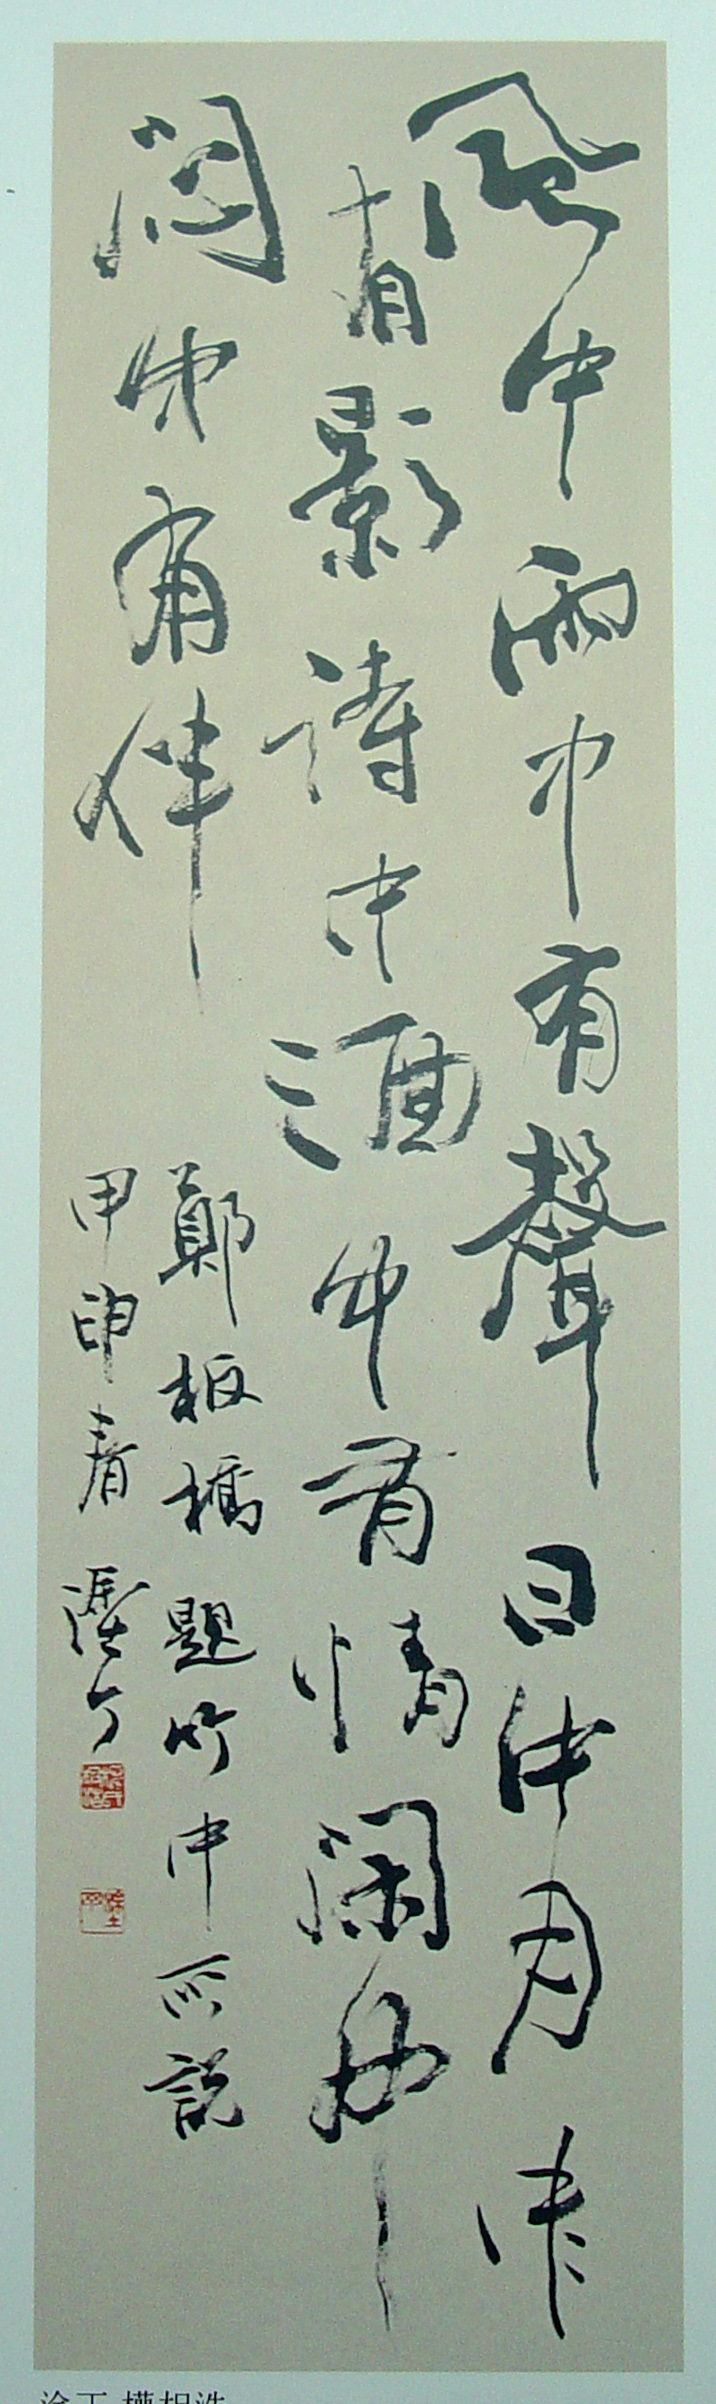 風中雨中有聲日中月中
有影詩中酒中有情閑中
悶中有伴
鄭板橋題竹中所說
甲申春